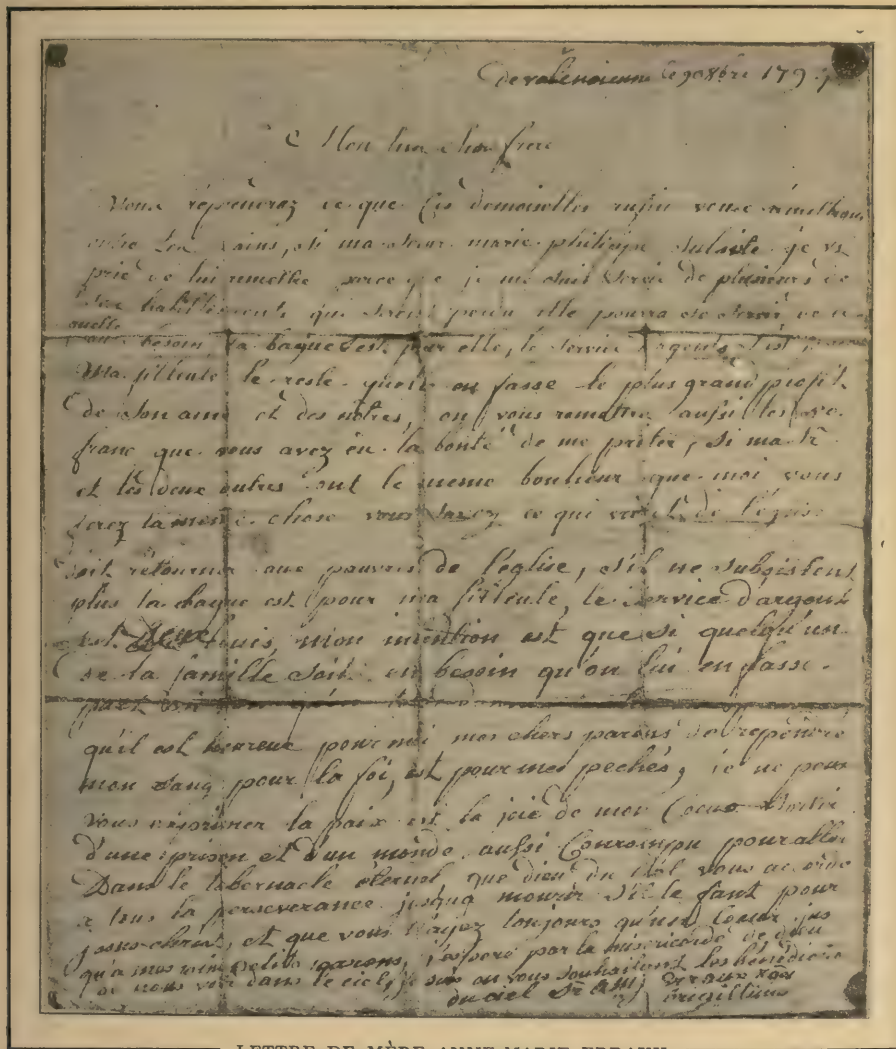 de valencienne le 9 8bre 179
Mon bien cher frere
Vous réprénerez ce que les demoiselles rufin vous rémettrons
entre les mains, si ma soeur marie philippe je vs
prie de lui remettre parce que je me suis servie de plusieurs de
ses habillements qui seront perdu elle pourra se servir de
besoin, la bague est pour elle, le service d'argent est
Ma filleule le reste qu'on en fasse le plus grand profit
de son ame et des nôtres, on vous remettra aussi les
franc que vous avez eu la bonté de me prêter, si ma
et les deux autres ont le meme bonheur que moi vous
ferez la meme chose vous savez ce qui vient de l'église
doit retourner aux pauvres de l'église, s'il ne subsistent
plus la bague est pour ma filleule, le service d'argent
est deux louis, mon intention est que si quelqu'un
de la famille soit en besoin qu'on lui en fasse
part
qu'il est heureux pour moi mes chers parens de repéndre
mon sang pour la foi, est pour mes pechés, je ne peux
vous exprimer la paix est la joie de mon Coeur Sortir
d'une prison et d'un monde aussi Corrompu pour aller
Dans le tabernacle éternel que dieu du ciel vous accorde
a tous la perseverance jusqua mourir s'il le faut pour
jesus-christ, et que vous n'ayez toujours qu'un Coeur
qu'a mes petits garcons, j'espere par la misericorde de dieu
de nous voir dans le ciel, je suis en vous souhaitant les bénédictions
du ciel Sr a m erraux
LETTRE DE MÈRE ANNE-MARIE ERRAUX